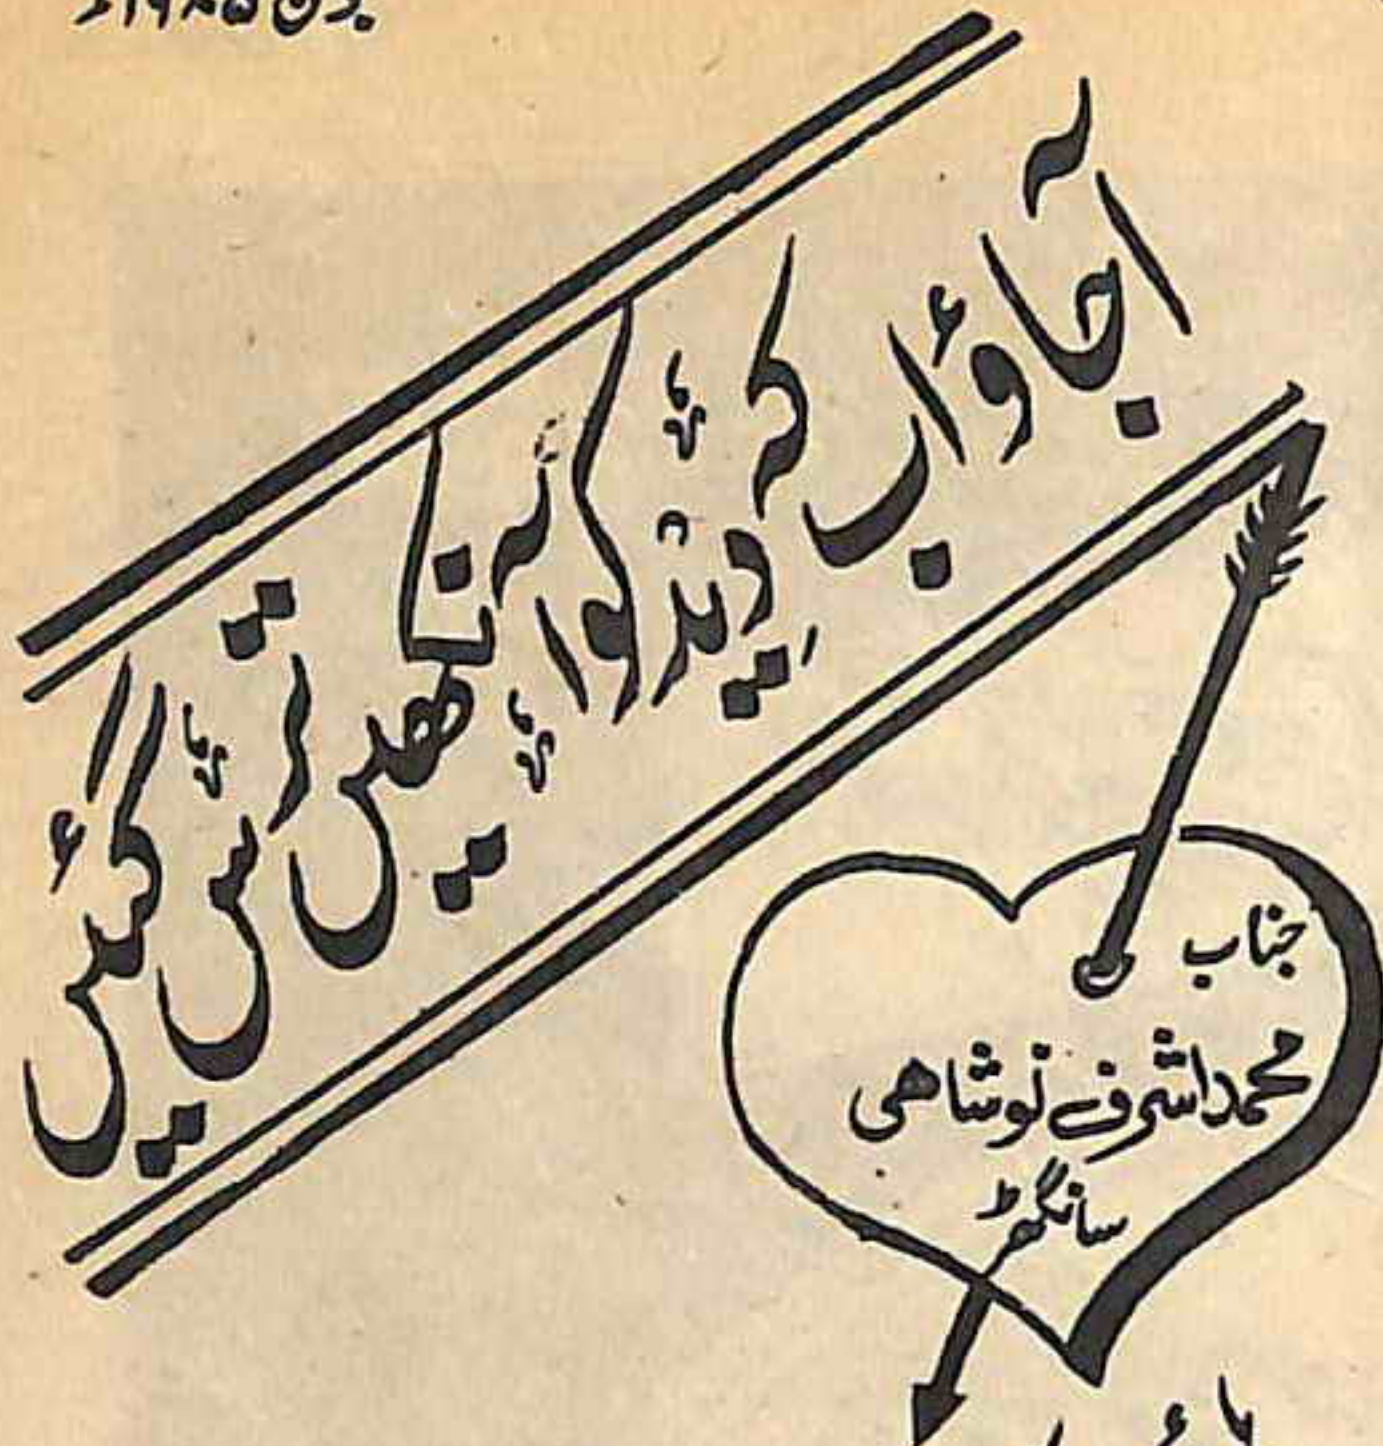 جون ۱۹۸۵ء
آجاؤ اب کہ دِید کو آنکھیں ترس گئیں
جناب
محمد اشرف نوشاهی
سانگھڑ